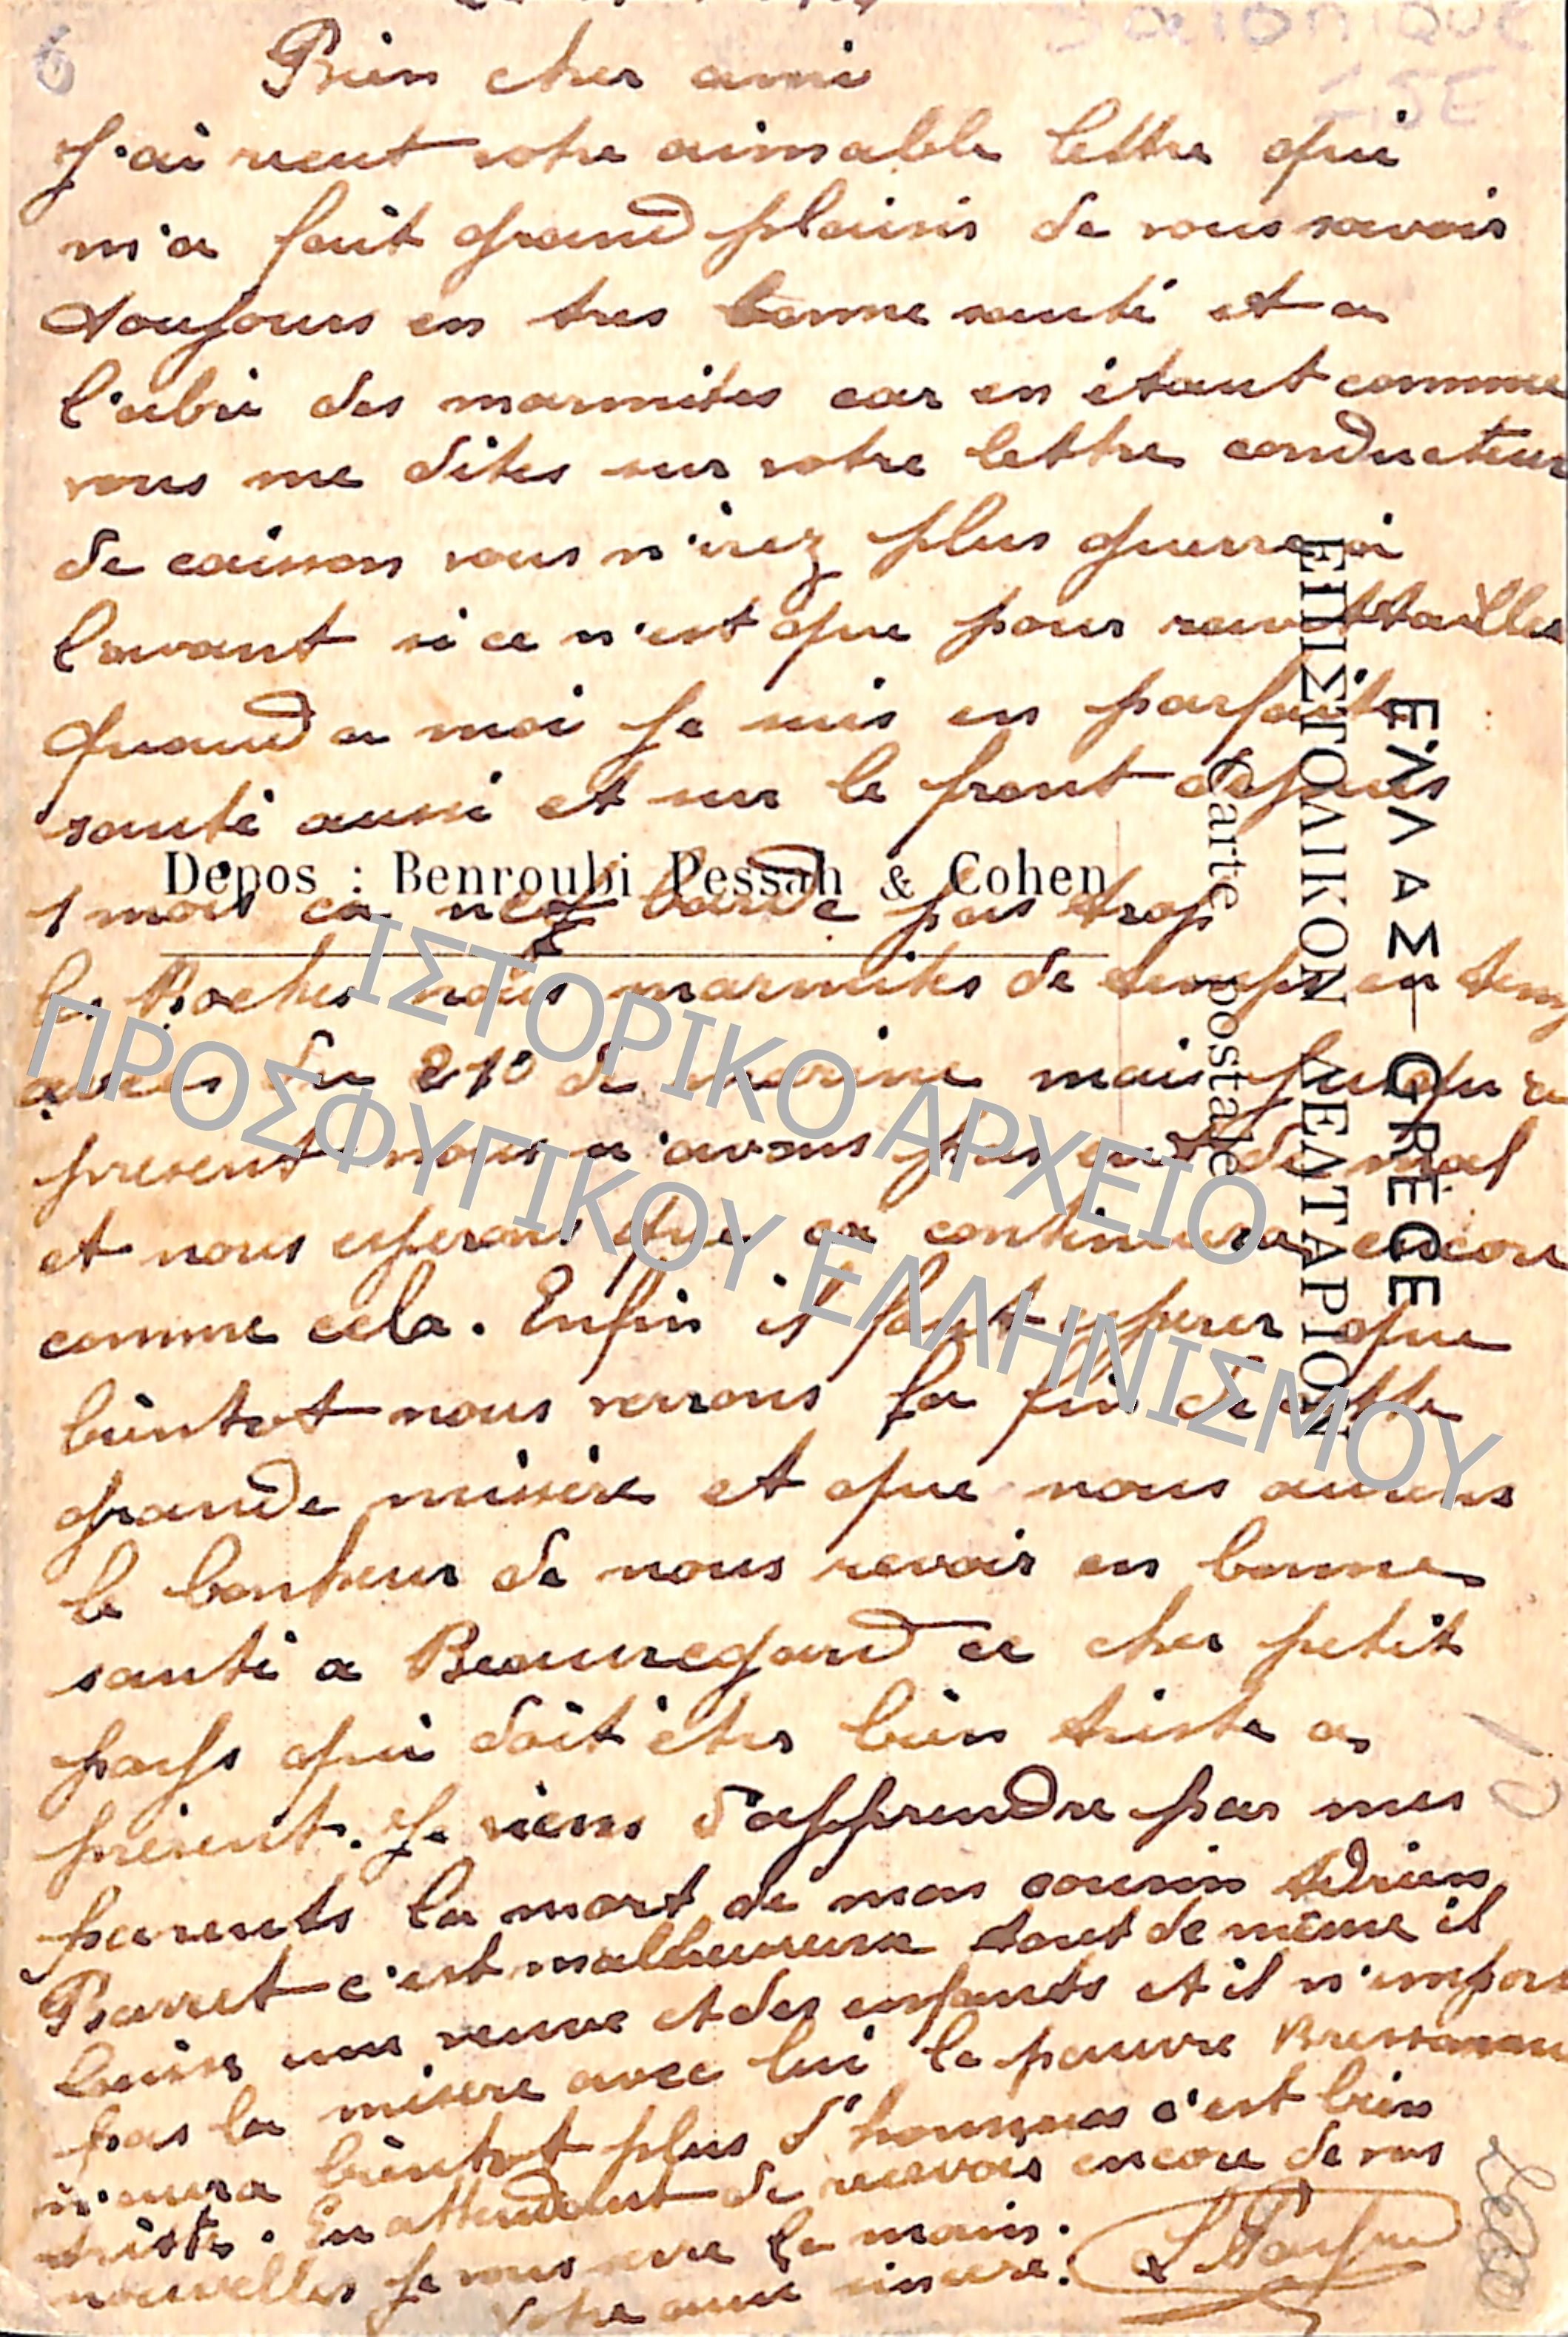 Salonique
Bien cher ami
J'ai recut votre aimable lettre qui
m'a fait grand plaisir de vous savoir
toujours en tres bonne santé et a
l'abri des marmites car en étant comme
vous me dites sur votre lettre conducteur
de caisson vous n'irez plus guerre a
l'avant si ce n'est que pour ravittailler
Quand a moi je suis en parfaite
santé aussi et sur le front depuis
Depos : Benroubi Pessah & Cohen
1 mois ca ne barde pas trop
les Boches nous marmites de temps en temps
avec du 210 de marine mais jusqu'a
present nous n'avons pas eut de mal
et nous esperons que ca continuera encore
comme cela. Enfin il faut esperer que
bientot nous verrons la fin de cette
grande misère et que nous aurons
le bonheur de nous revoir en bonne
santé a Beauregard ce cher petit
pays qui doit être bien triste a
présent. Je viens d'apprendre par mes
parents la mort de mon cousin Adrien
Barret c'est malheureux tout de même il
laisse une veuve et des enfants et il n'emporte
pas la misere avec lui le pauvre
n'aura bientot plus d'hommes c'est bien
triste. En attendant de recevoir encore de vos
nouvelles je vous serre la main.
Votre ami sincere.
ΕΛΛΑΣ — GRÈCE
ΕΠΙΣΤΟΛΙΚΟΝ ΔΕΛΤΑΡΙΟΝ
Carte postale
ΙΣΤΟΡΙΚΟ ΑΡΧΕΙΟ
ΠΡΟΣΦΥΓΙΚΟΥ ΕΛΛΗΝΙΣΜΟΥ